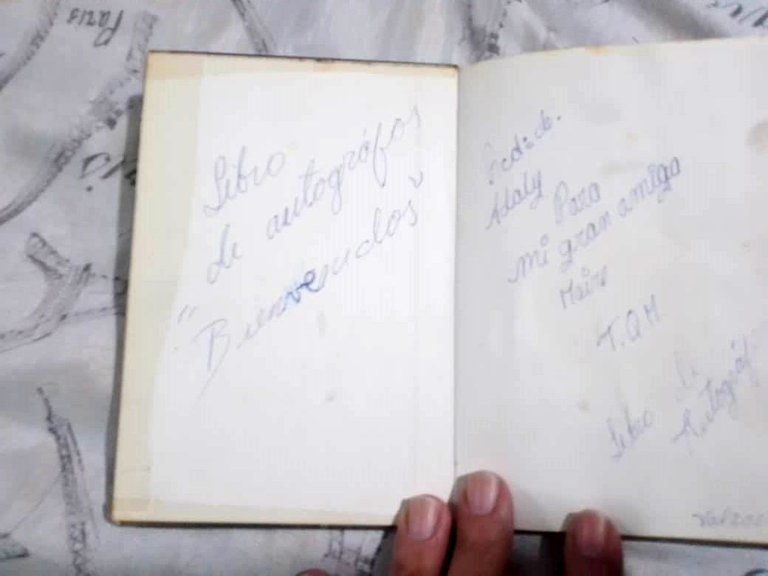 Libro
de autográfos
"Bienvenidos"
Adaly
Para
mi gran amiga
T.Q.M
Libro de
Autográf
Paris